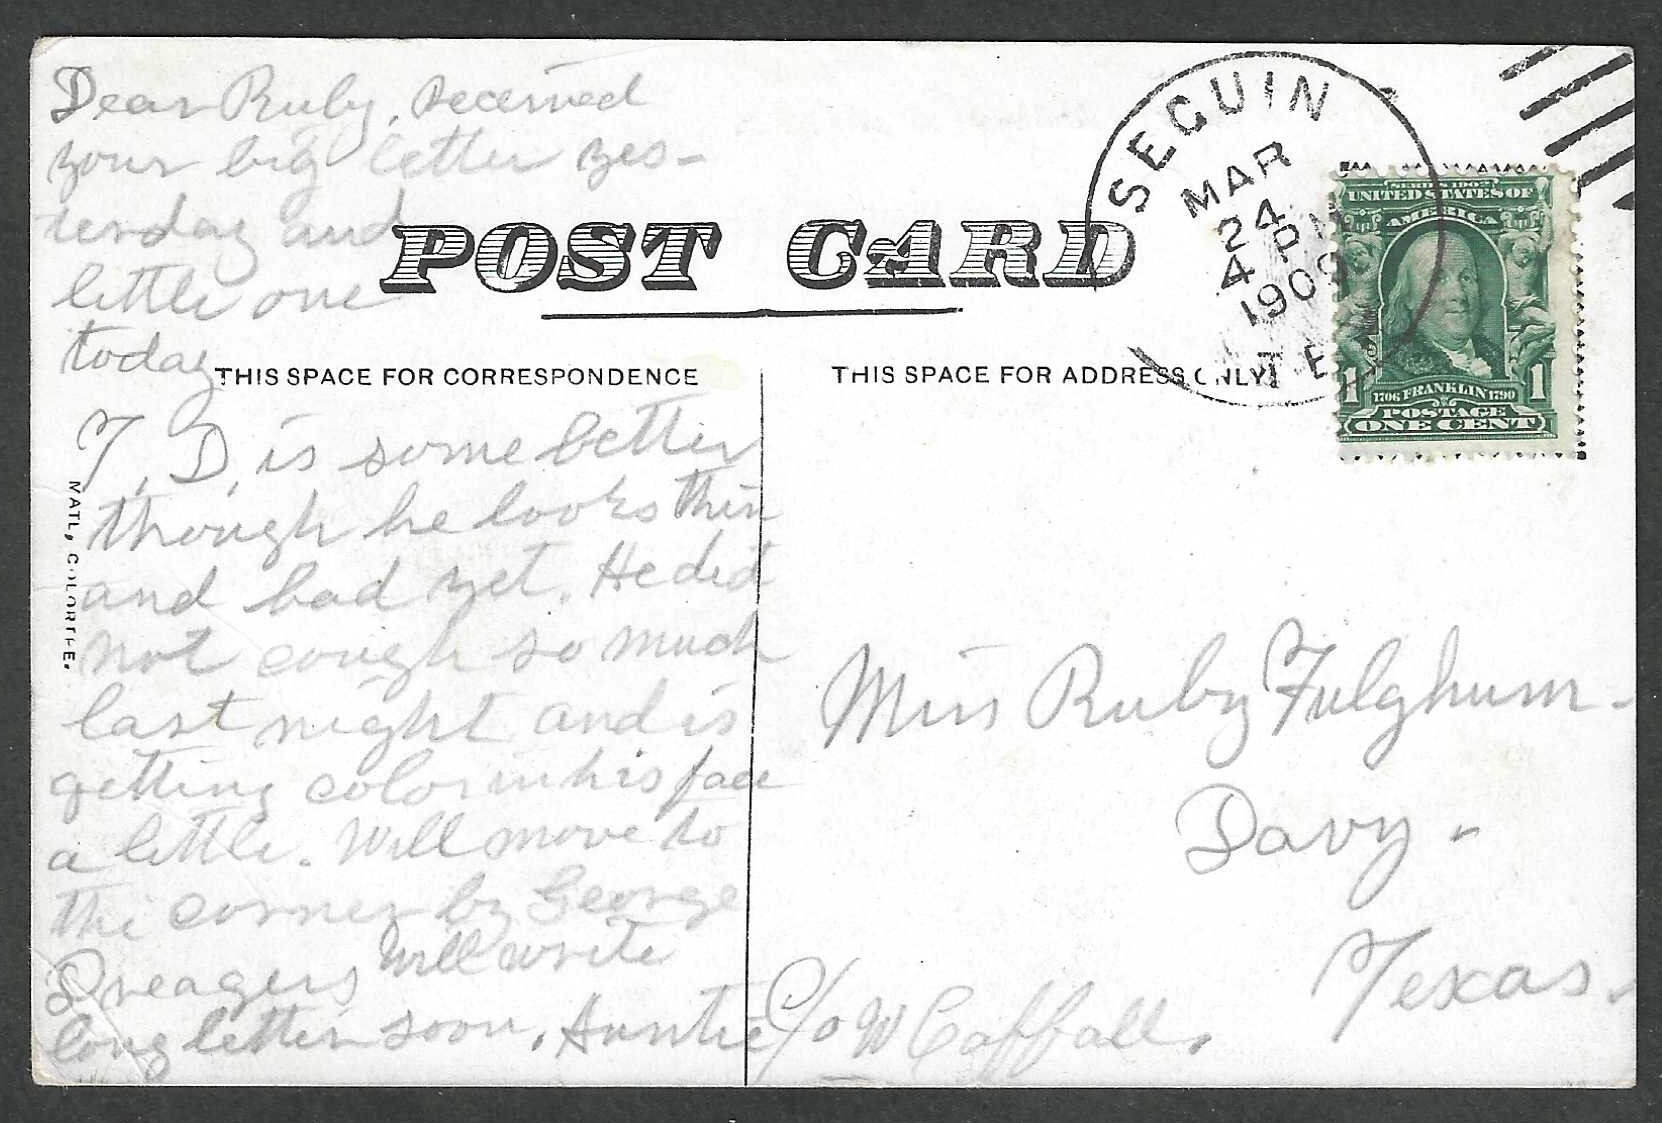 Dear Ruby, received
your big letter yes-
terday and
little one
today
T. D. is some better
though he looks thin
and bad yet. He did
not cough so much
last night and is
getting color in his face
a little. Will move to
the corner by George
Will write
long letter soon. Auntie
POST CARD
THIS SPACE FOR CORRESPONDENCE
THIS SPACE FOR ADDRESS ONLY
NATL, COLORTPE.
SEGUIN
MAR
24
4 PM
1909
TEX
SERIES 1902
UNITED STATES OF
AMERICA
1 1706 FRANKLIN 1790 1
POSTAGE
ONE CENT
Miss Ruby Fulghum-
Davy-
Texas.
C/o W Caffall.